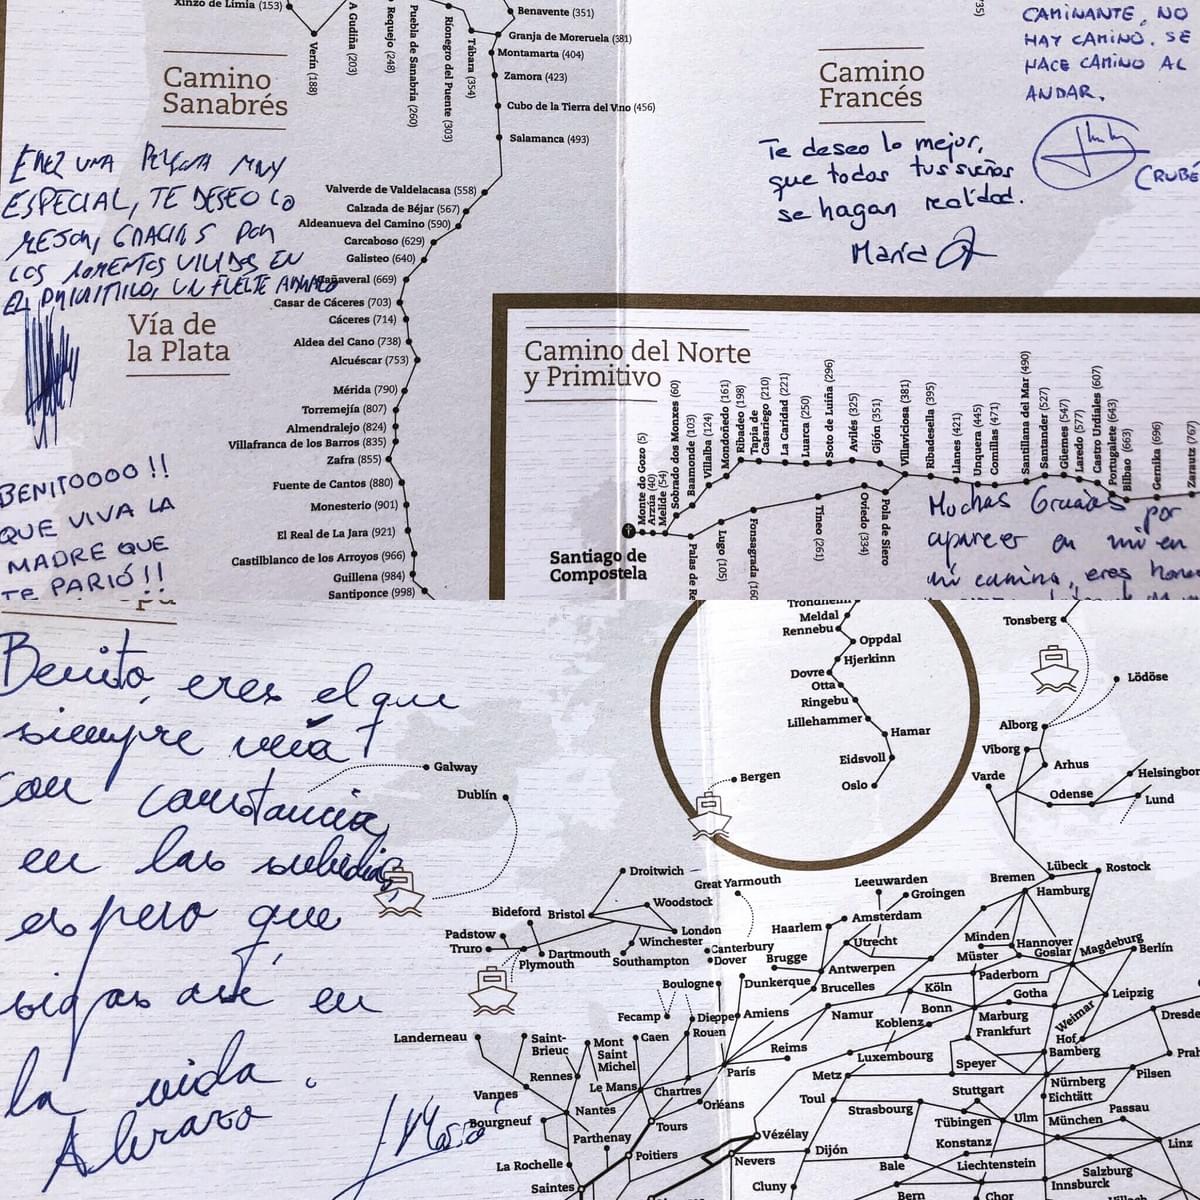 Xinzo de Limia (153)
Verín (188)
A Gudiña (203)
Requejo (248)
Puebla de Sanabria (260)
Rionegro del Puente (303)
Tábara (354)
Benavente (351)
Granja de Moreruela (381)
Montamarta (404)
Zamora (423)
Cubo de la Tierra del Vino (456)
Salamanca (493)
Camino
Sanabrés
ERES UNA PERSONA MUY
ESPECIAL, TE DESEO LO
MEJOR, GRACIAS POR
LOS MOMENTOS VIVIDOS EN
EL PRIMITIVO, UN FUERTE ABRAZO
Valverde de Valdelacasa (558)
Calzada de Béjar (567)
Aldeanueva del Camino (590)
Carcaboso (629)
Galisteo (640)
Cañaveral (669)
Casar de Cáceres (703)
Cáceres (714)
Aldea del Cano (738)
Alcuéscar (753)
Mérida (790)
Torremejía (807)
Almendralejo (824)
Villafranca de los Barros (835)
Zafra (855)
Fuente de Cantos (880)
Monesterio (901)
El Real de La Jara (921)
Castilblanco de los Arroyos (966)
Guillena (984)
Santiponce (998)
Vía de
la Plata
BENITOOOO !!
QUE VIVA LA
MADRE QUE
TE PARIÓ!!
Camino
Francés
CAMINANTE, NO
HAY CAMINO. SE
HACE CAMINO AL
ANDAR.
CRUBÉ
Te deseo lo mejor,
que todos tus sueños
se hagan realidad.
María
Camino del Norte
y Primitivo
Santiago de
Compostela
Monte do Gozo (5)
Arzúa (40)
Melide (54)
Sobrado dos Monxes (60)
Baamonde (103)
Villalba (124)
Mondonedo (161)
Ribadeo (198)
Tapia de
Casariego (210)
La Caridad (221)
Luarca (250)
Soto de Luiña (296)
Avilés (325)
Gijón (351)
Villaviciosa (381)
Ribadesella (395)
Llanes (421)
Unquera (445)
Comillas (471)
Santillana del Mar (490)
Santander (527)
Güemes (547)
Laredo (577)
Castro Urdiales (607)
Portugalete (643)
Bilbao (663)
Gernika (696)
Zarautz (767)
Palas de Re
Lugo (105)
Fonsagrada (160
Tineo (261)
Oviedo (334)
Pola de Siero
Muchas Gracias por
aparecer en mi en
mi camino, eres
Benito, eres el que
siempre veía
con constancia
en las subidas,
espero que
sigas así en
la vida.
Abrazo
Trondheim
Meldal
Rennebu
Oppdal
Hjerkinn
Dovre
Otta
Ringebu
Lillehammer
Hamar
Eidsvoll
Oslo
Bergen
Tonsberg
Lödöse
Alborg
Viborg
Arhus
Varde
Odense
Helsingbor
Lund
Galway
Dublín
Droitwich
Woodstock
Bideford
Bristol
London
Padstow
Truro
Plymouth
Dartmouth
Winchester
Southampton
Great Yarmouth
Canterbury
Dover
Leeuwarden
Groningen
Haarlem
Amsterdam
Utrecht
Brugge
Antwerpen
Dunkerque
Brucelles
Boulogne
Fecamp
Dieppe
Amiens
Rouen
Bremen
Lübeck
Rostock
Hamburg
Minden
Hannover
Müster
Goslar
Magdeburg
Berlín
Paderborn
Köln
Gotha
Leipzig
Namur
Bonn
Marburg
Weimar
Koblenz
Frankfurt
Hof
Dresde
Luxembourg
Bamberg
Prah
Speyer
Nürnberg
Pilsen
Metz
Reims
París
Toul
Stuttgart
Eichtätt
Strasbourg
Tübingen
Ulm
München
Passau
Konstanz
Linz
Bale
Liechtenstein
Salzburg
Bern
Chor
Innsburck
Landerneau
Saint-
Brieuc
Mont
Saint
Michel
Caen
Rennes
Le Mans
Chartres
Orléans
Vannes
Nantes
Bourgneuf
Tours
Parthenay
Poitiers
Vézélay
Nevers
Dijón
La Rochelle
Saintes
Cluny